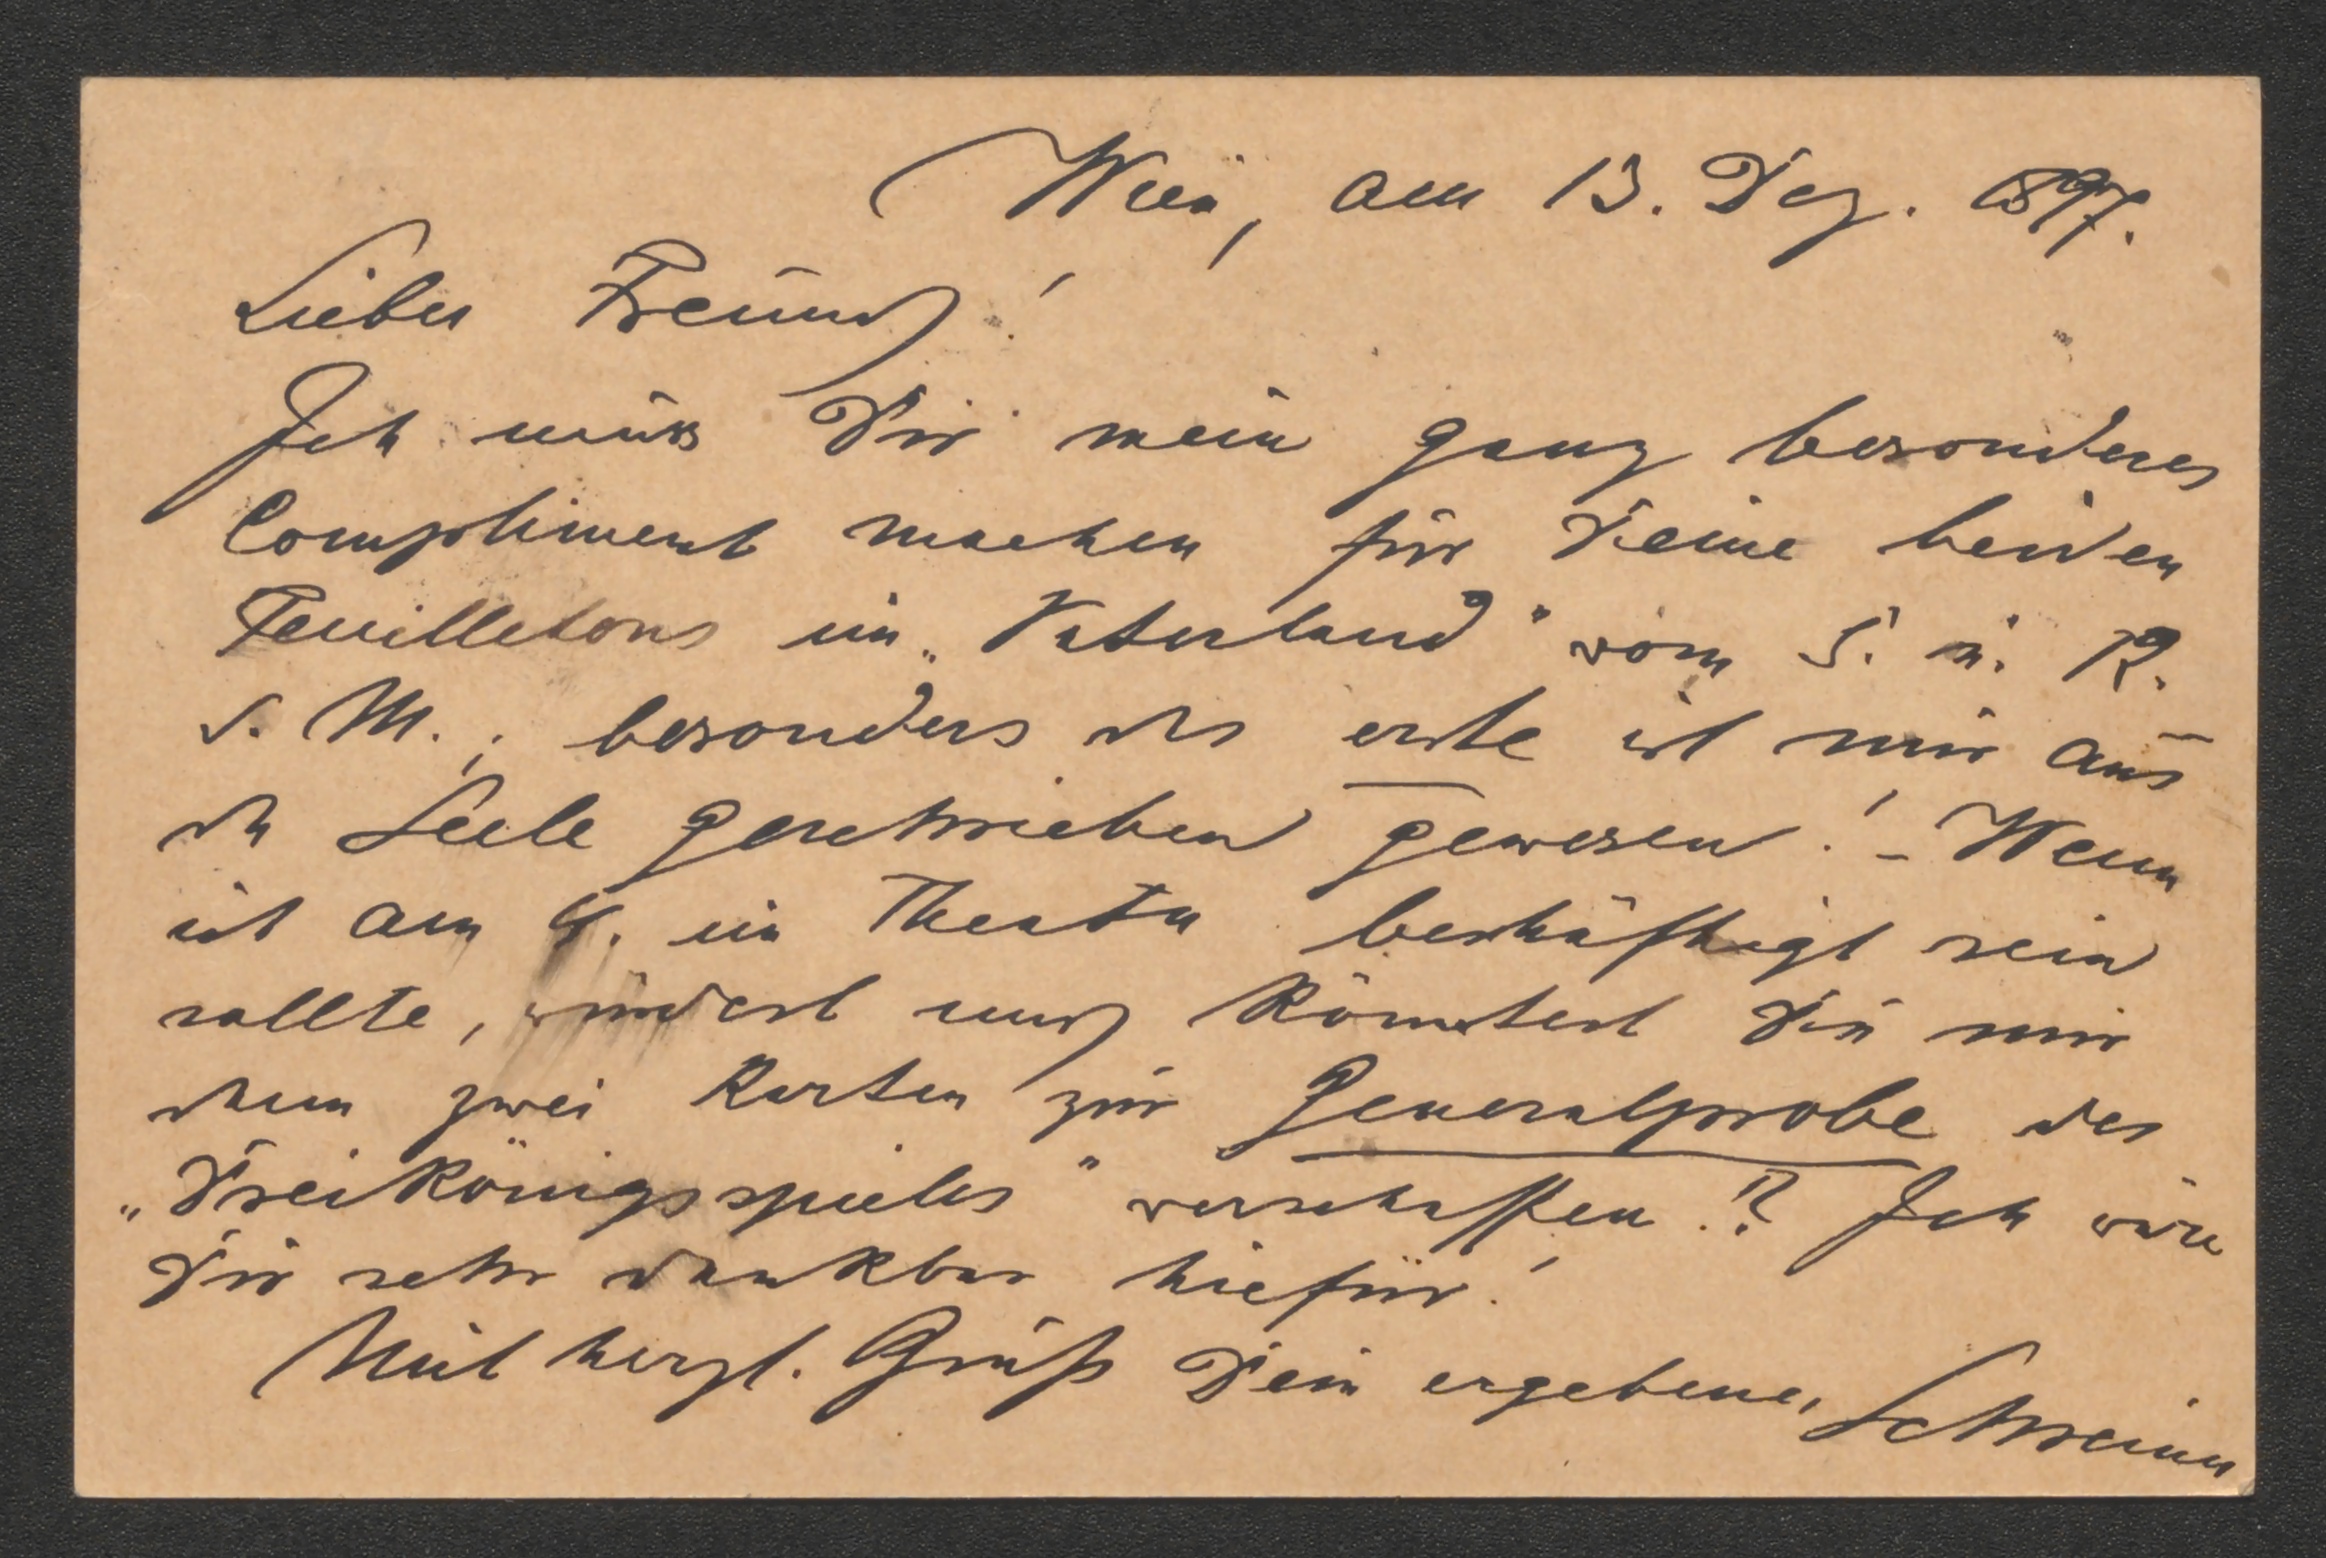 Wien, am 13. Dez. 897.
Lieber Freund!
Ich muss Dir mein ganz besonderes
Compliment machen für Deine beiden
Feuilletons im „Vaterland“ vom 5. u. 12.
d. M.; besonders das erste ist mir aus
der Seele geschrieben gewesen! - Wenn
ich am 4. im Theater beschäftigt sein
sollte, würdest und könntest Du mir
dann zwei Karten zur Generalprobe des
„Dreikönigsspieles“ verschaffen!? Ich wäre
Dir sehr dankbar hiefür!
Mit herzl. Gruß Dein ergebener Schreiner